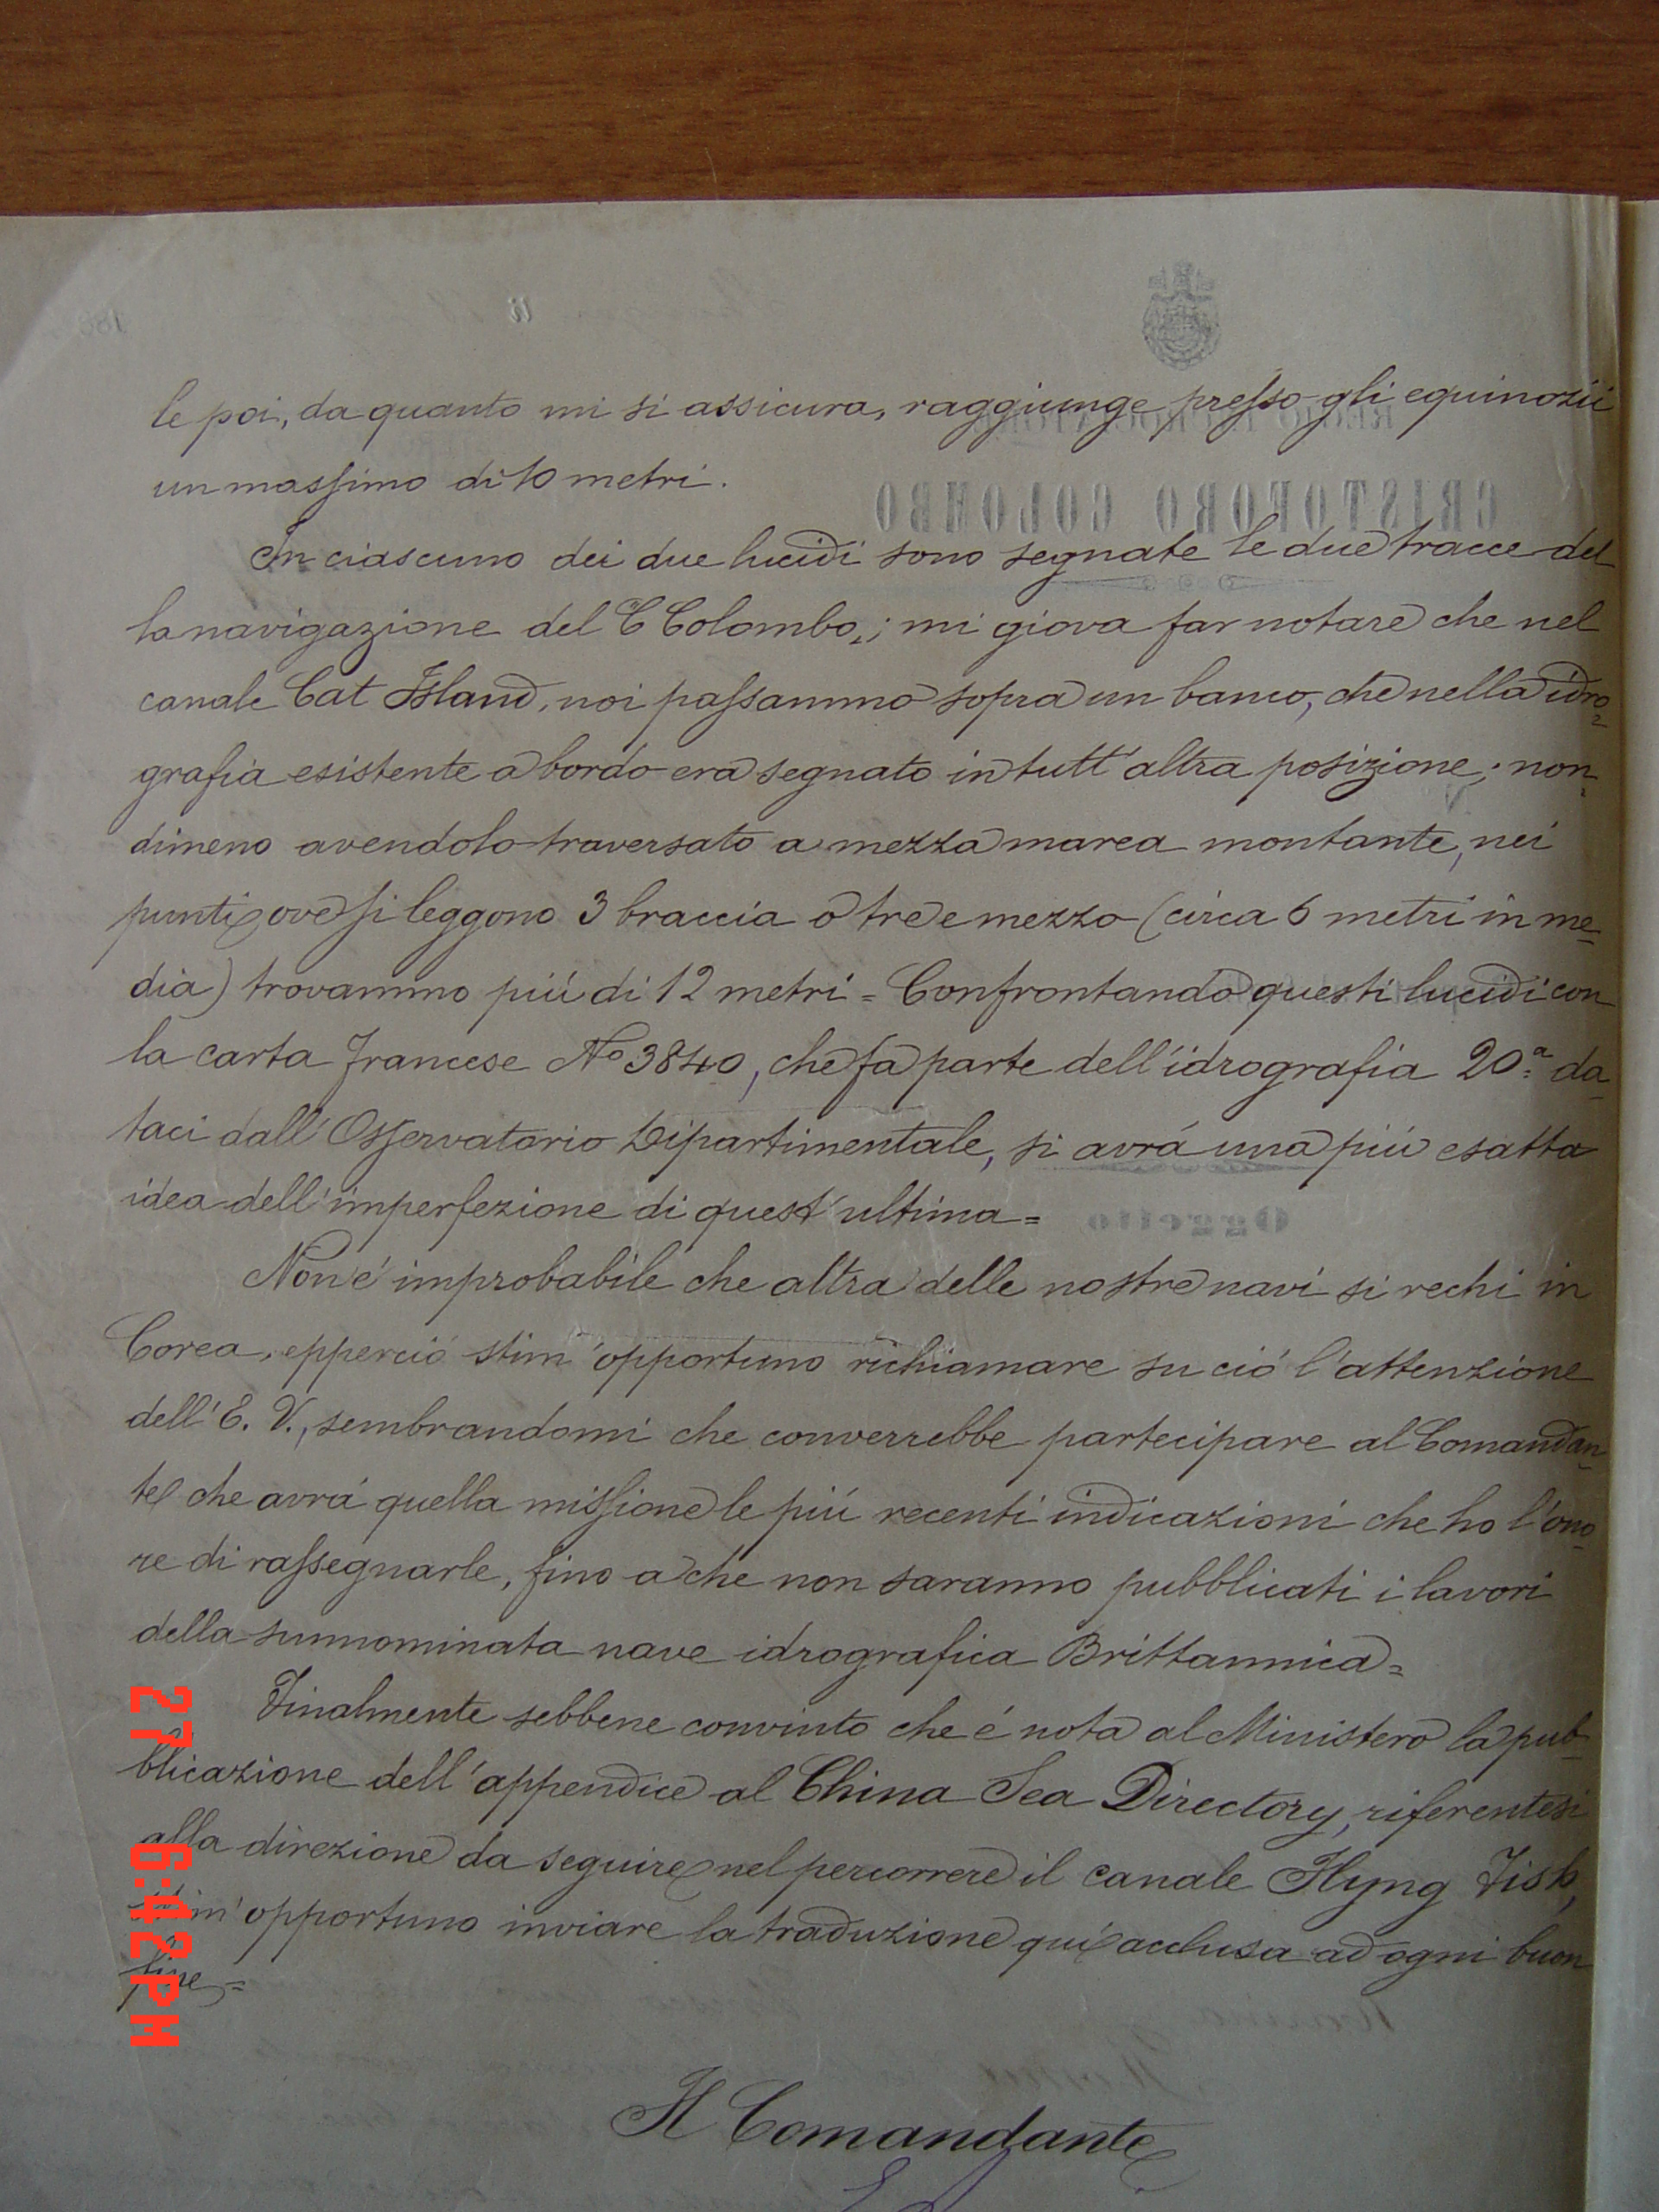 le poi, da quanto mi si assicura, raggiunge presso gli equinozii
un massimo di 10 metri.
In ciascuno dei due lucidi sono segnate le due tracce del
la navigazione del C Colombo,; mi giova far notare che nel
canale Cat Island, noi passammo sopra un banco, che nella idro=
grafia esistente a bordo era segnato in tutt'altra posizione; non=
dimeno avendolo traversato a mezza marea montante, nei
punti ove si leggono 3 braccia o tre e mezzo (circa 6 metri in me=
dia) trovammo più di 12 metri = Confrontando questi lucidi con
la carta francese No 3840, che fa parte dell'idrografia 20.a da=
taci dall'Osservatorio Dipartimentale, si avrá una piú esatta
idea dell'imperfezione di quest'ultima =
Non é improbabile che altra delle nostre navi si rechi in
Corea, epperció stim'opportuno richiamare su ció l'attenzione
dell'E. V., sembrandomi che converrebbe partecipare al Comandan=
te che avrá quella missione le piú recenti indicazioni che ho l'ono=
re di rassegnarle, fino a che non saranno pubblicati i lavori
della sunnominata nave idrografica Brittannica =
Finalmente sebbene convinto che é nota al Ministero la pub=
blicazione dell'appendice al China Sea Directory, riferentesi
alla direzione da seguire nel percorrere il canale Flyng Fish,
stim'opportuno inviare la traduzione quí acclusa ad ogni buon
fine =
Il Comandante
27 6:42PM
REGIO
CRISTOFORO COLOMBO
Oggetto